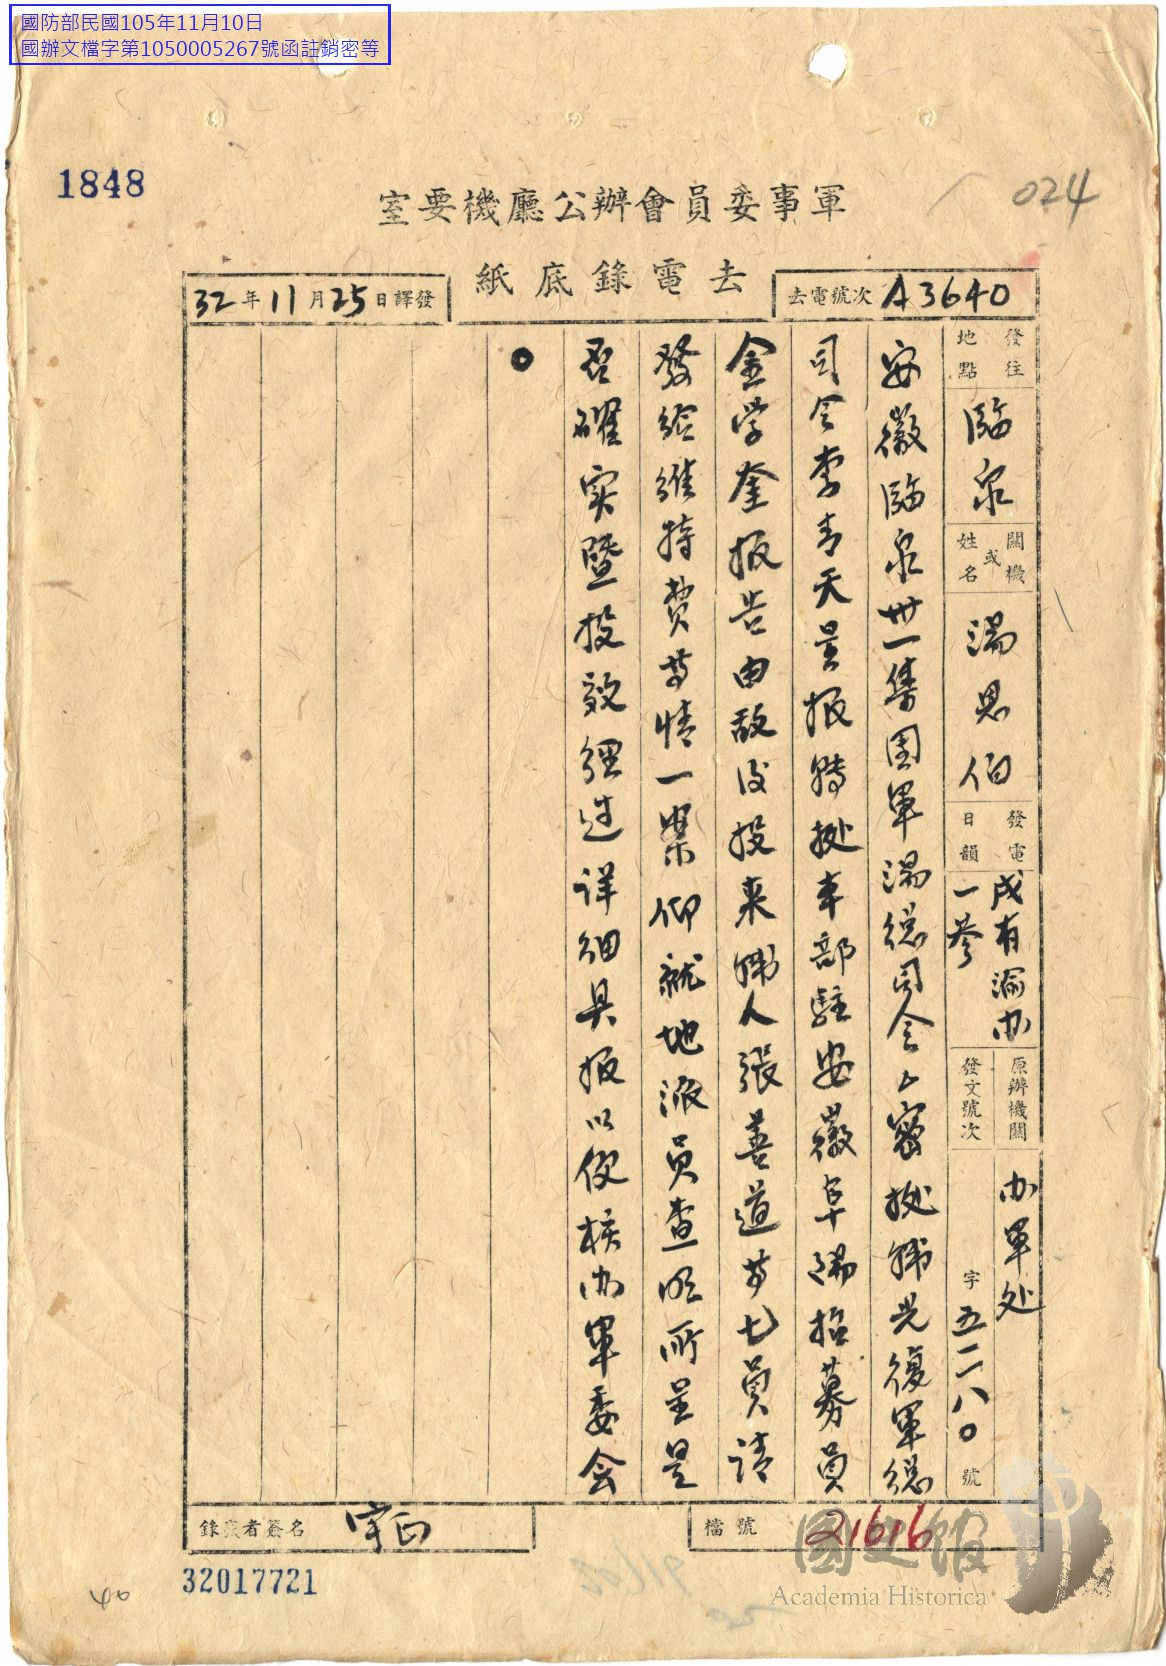 國防部民國105年11月10日
國辦文檔字第1050005267號函註銷密等
1848
024
軍事委員會辦公廳機要室
去電錄底紙
去電號次 A3640
32年11月25日譯發
發往地點 臨泉
機關或姓名 湯恩伯
發電日韻 戌有渝办一參
原辦機關 办軍处
發文號次 字五二八〇號
安徽臨泉卅一集團軍湯總司令△密拠韓光復軍總
司令李青天呈报轉拠本部駐安徽阜陽招募員
金学奎报告由敵後投来韓人張善道等七員請
發給維持費等情一案仰就地派員查明所呈是
否確实暨投效經过详细具报以便核办軍委会
。
檔號 21616
錄底者簽名
32017721
國史館
Academia Historica